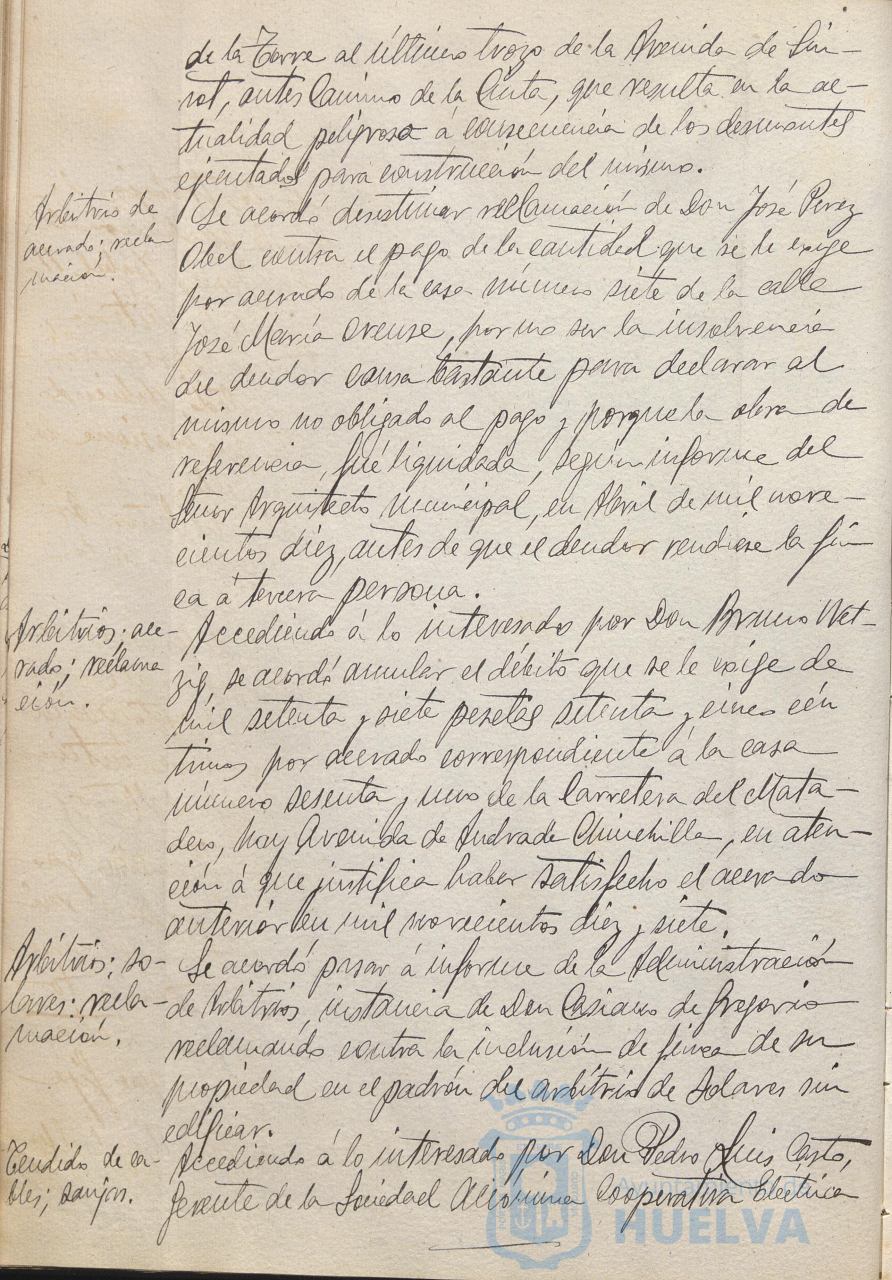 de la Torre al último trozo de la Avenida de Sun-
rot, antes Camino de la Cinta, que resulta en la ac-
tualidad peligrosa á consecuencia de los desmontes
ejecutados para construcción del mismo.
Arbitrios de
acerado; recla
mación.
Se acordó desestimar reclamación de Don José Perez
Abel contra el pago de la cantidad que se le exige
por acerado de la casa número siete de la calle
José María Orense, por no ser la insolvencia
del deudor causa bastante para declarar al
mismo no obligado al pago y porque la obra de
referencia, fué liquidada, según informe del
Señor Arquitecto municipal, en Abril de mil nove-
cientos diez, antes de que el deudor vendiese la fin
ca á tercera persona.
Arbitrios; ace-
rado; reclama
ción.
Accediendo á lo interesado por Don Bruno Wet-
zig, se acordó anular el débito que se le exige de
mil setenta y siete pesetas setenta y cinco cén
timos por acerado correspondiente á la casa
número sesenta y uno de la Carretera del Mata-
dero, hoy Avenida de Andrade Chinchilla, en aten-
ción á que justifica haber satisfecho el acerado
anterior en mil novecientos diez y siete.
Arbitrios; so-
lares: recla-
mación.
Se acordó pasar á informe de la Administración
de Arbitrios, instancia de Don Casiano de Gregorio
reclamando contra la inclusión de finca de su
propiedad en el padrón del arbitrio de Solares sin
edificar.
Tendido de ca-
bles; zanjas.
Accediendo á lo interesado por Don Pedro Luis Casto,
Gerente de la Sociedad Anónima Cooperativa Eléctrica
Ayuntamiento de
HUELVA